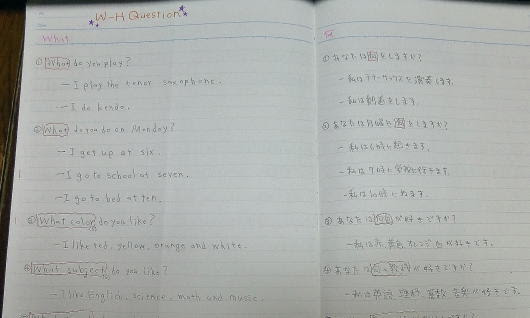 W-H Question
What
① What do you play?
— I play the tenor saxophone.
— I do kendo.
② What do you do on Monday?
— I get up at six.
— I go to school at seven.
— I go to bed at ten.
③ What color do you like?
— I like red, yellow, orange and white.
④ What subject do you like?
— I like English, science, math and music.
何
① あなたは何をしますか?
— 私はテナーサックスを演奏します。
— 私は剣道をします。
② あなたは月曜に何をしますか?
— 私は6時に起きます。
— 私は7時に学校に行きます。
— 私は10時にねます。
③ あなたは何色が好きですか?
— 私は赤、黄色、オレンジ、白が好きです。
④ あなたは何の教科が好きですか?
— 私は英語、理科、算数、音楽が好きです。